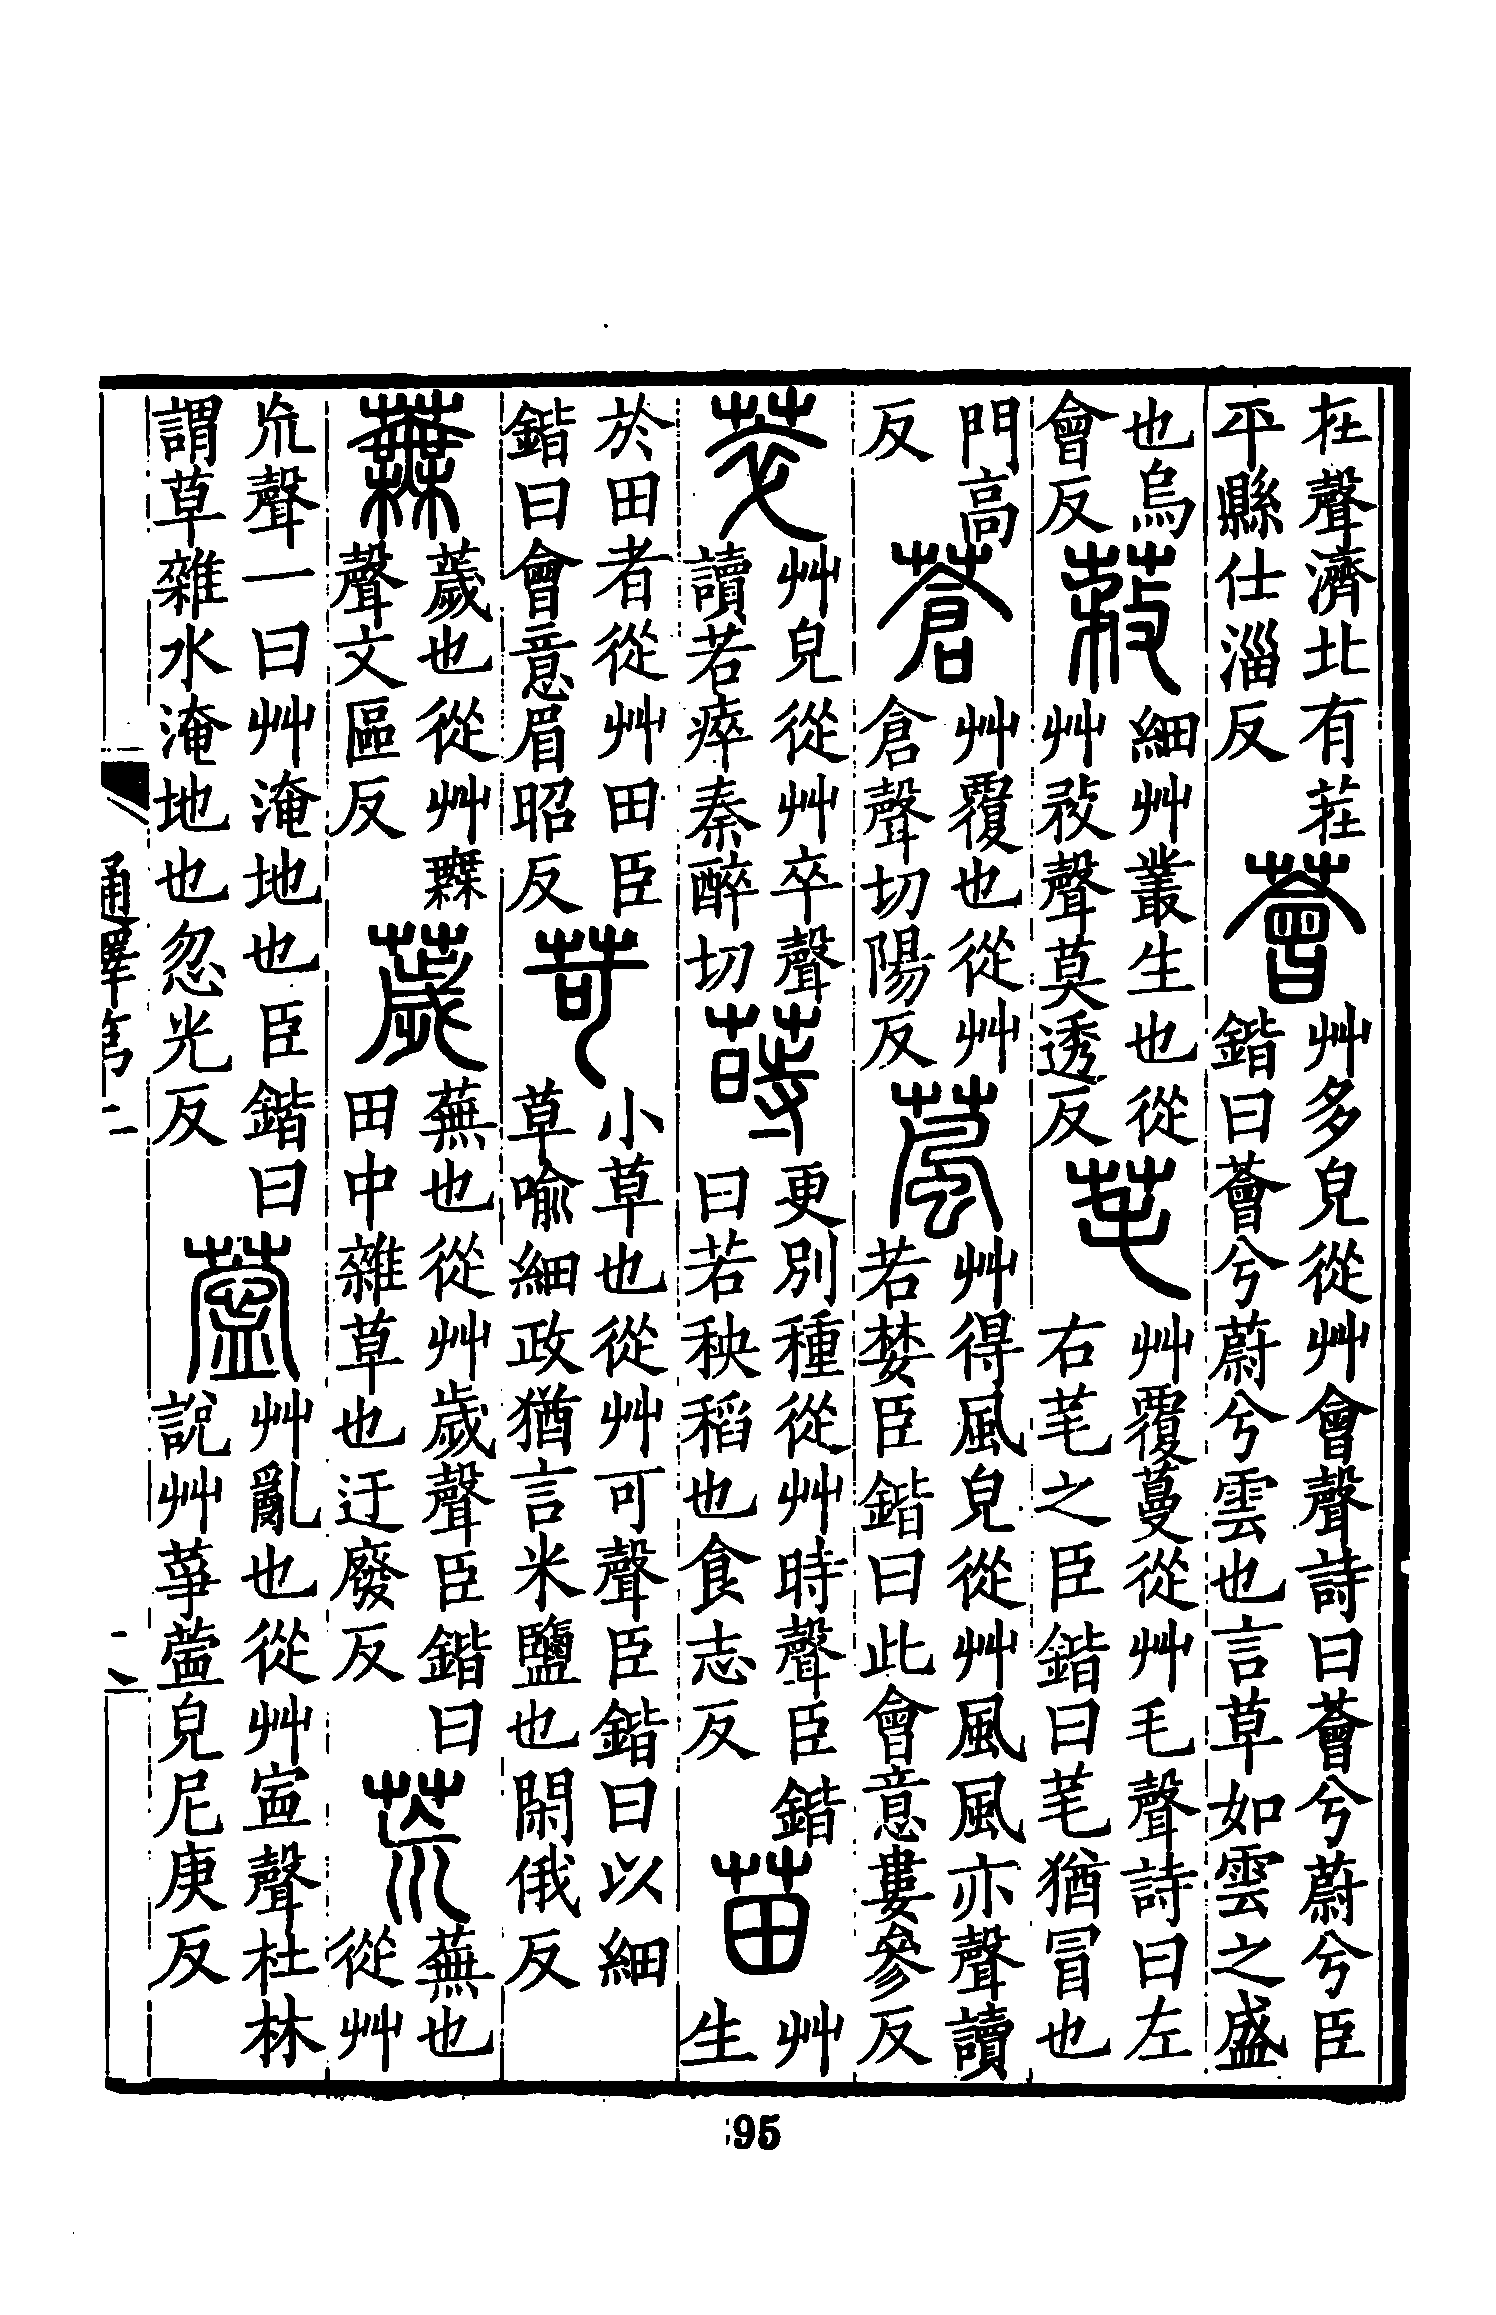 在聲濟北有茬
平縣仕淄反
薈
艸多皃從艸會聲詩曰薈兮蔚兮臣
鍇曰薈兮蔚兮雲也言草如雲之盛
也烏
會反
蓩
細艸叢生也從
艸敄聲莫透反
芼
艸覆蔓從艸毛聲詩曰左
右芼之臣鍇曰芼猶冒也
門高
反
蒼
艸覆也從艸
倉聲切陽反
葻
艸得風皃從艸風風亦聲讀
若婪臣鍇曰此會意婁參反
萃
艸皃從艸卒聲
讀若瘁秦醉切
蒔
更別種從艸時聲臣鍇
曰若秧稻也食志反
苗
艸
生
於田者從艸田臣
鍇曰會意眉昭反
苛
小草也從艸可聲臣鍇曰以細
草喻細政猶言米鹽也閑俄反
蕪
薉也從艸無
聲文區反
薉
蕪也從艸歲聲臣鍇曰
田中雜草也迂廢反
荒
蕪也
從艸
巟聲一曰艸淹地也臣鍇曰
謂草雜水淹地也忽光反
薴
艸亂也從艸寍聲杜林
說艸䓸薴皃尼庚反
通釋第二
二
95